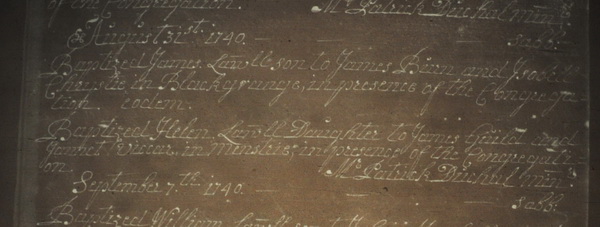 of the Congregation. Mr. Patrick Duchal minr.
August 31st. 1740. — — — sabb:
Baptized James Lawll: son to James Bian and Isobell
Christie in Blackgrange, in presence of the Congrega-
tion. eodem.
Baptized Helen Lawll Daughter to James Guild and
Jannet Viccar, in Menstrie, in presence of the Congregati-
on. Mr. Patrick Duchal minr.
September 7th. 1740. — — — sabb:
Baptized William